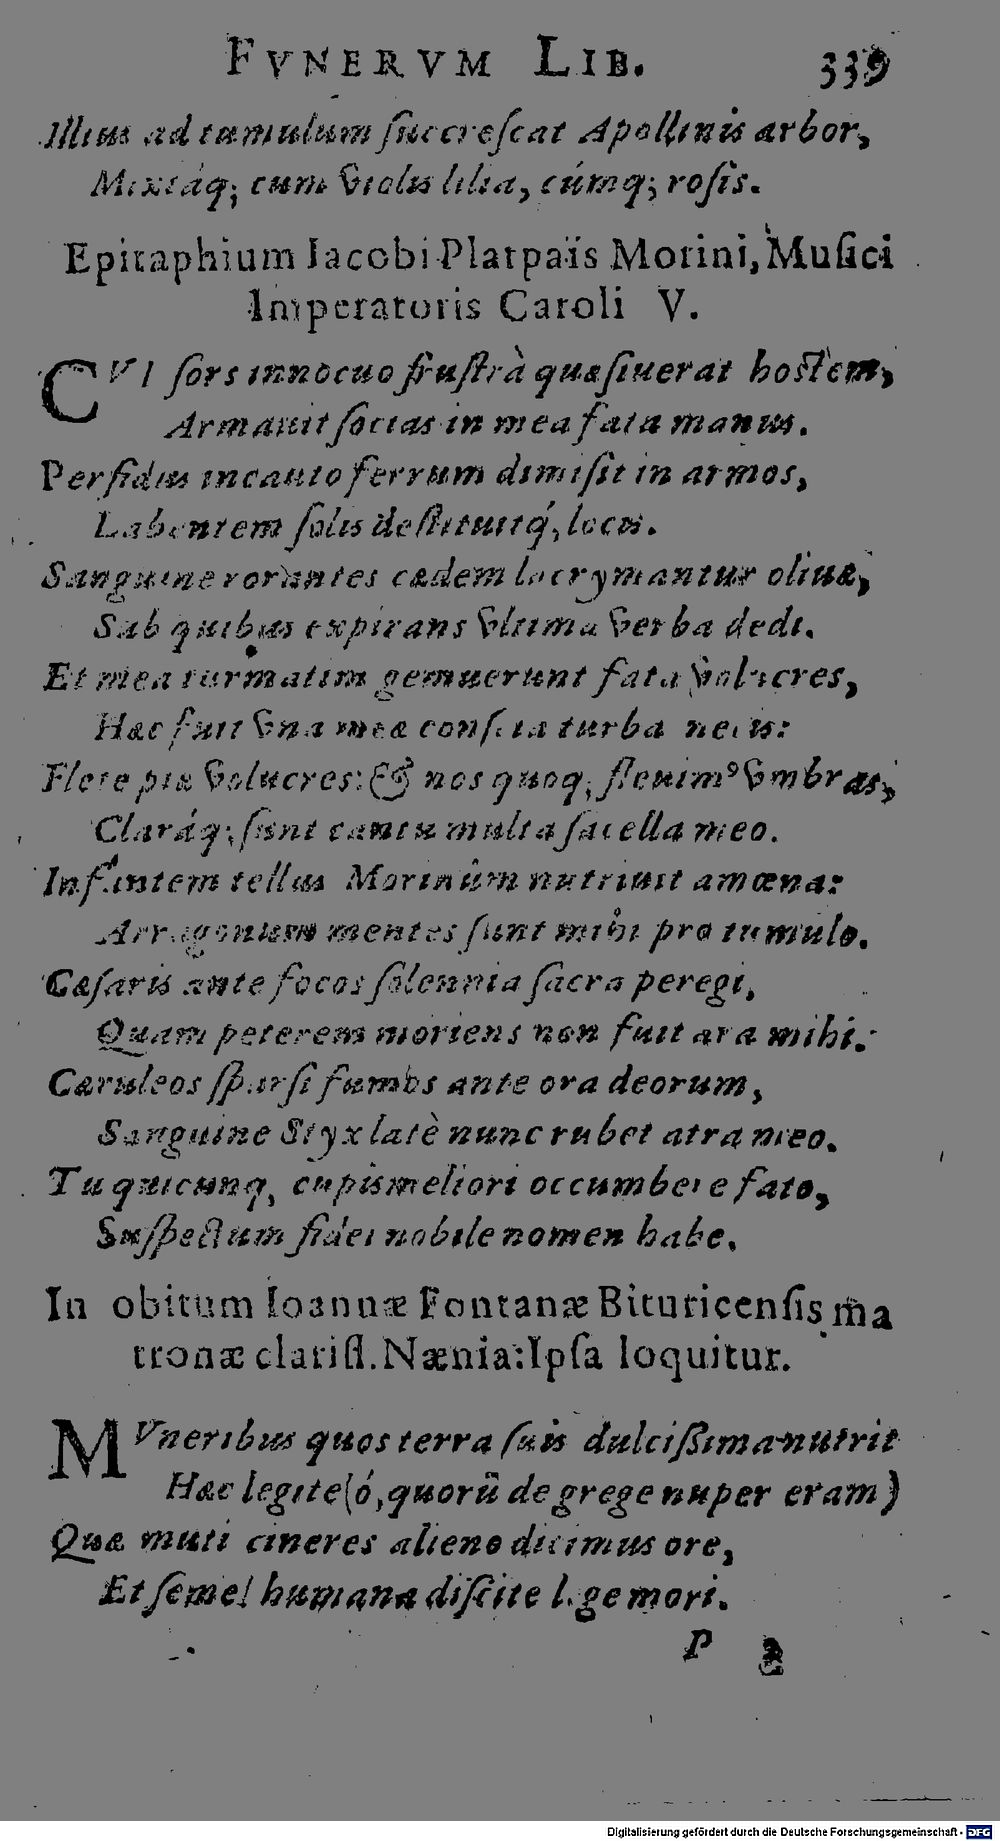 FVNERVM LIB. 339
Illius ad tumulum ſuccreſcat Apollinis arbor,
Mixtáq; cum violis lilia, cúmq; roſis.
Epitaphium Iacobi Platpaïs Morini, Muſici
Imperatoris Caroli V.
CVI ſors innocuo fruſtrà quæſiuerat hostem,
Armauit ſocias in mea fata manus.
Perfidus incauto ferrum dimiſit in armos,
Labentem ſolis deſtituitq́, locis.
Sanguine rorantes cædem lacrymantur oliuæ,
Sub quibus expirans vltima verba dedi.
Et mea turmatim gemuerunt fata volucres,
Hæc fuit vna meæ conſcia turba necis:
Flete piæ volucres: & nos quoq; fleuimꝰ vmbras,
Claráq; ſunt cantu multa ſacella meo.
Infantem tellus Morinûm nutriuit amœna:
Arragonum mentes ſunt mihi pro tumulo.
Cæſaris ante focos ſolennia ſacra peregi,
Quam peterem moriens non fuit ara mihi.
Cæruleos ſparſi fumos ante ora deorum,
Sanguine Styx latè nunc rubet atra meo.
Tu quicunq, cupis meliori occumbere fato,
Suſpectum fidei nobile nomen habe.
In obitum Ioannæ Fontanæ Bituricenſis ma
tronæ clariſſ. Nænia: Ipſa loquitur.
MVneribus quos terra ſuis dulciſsima nutrit
Hæc legite (ó, quorū de grege nuper eram)
Quæ muti cineres alieno dicimus ore,
Et ſemel humana diſcite lege mori.
P 2
Digitalisierung gefördert durch die Deutsche Forschungsgemeinschaft - DFG